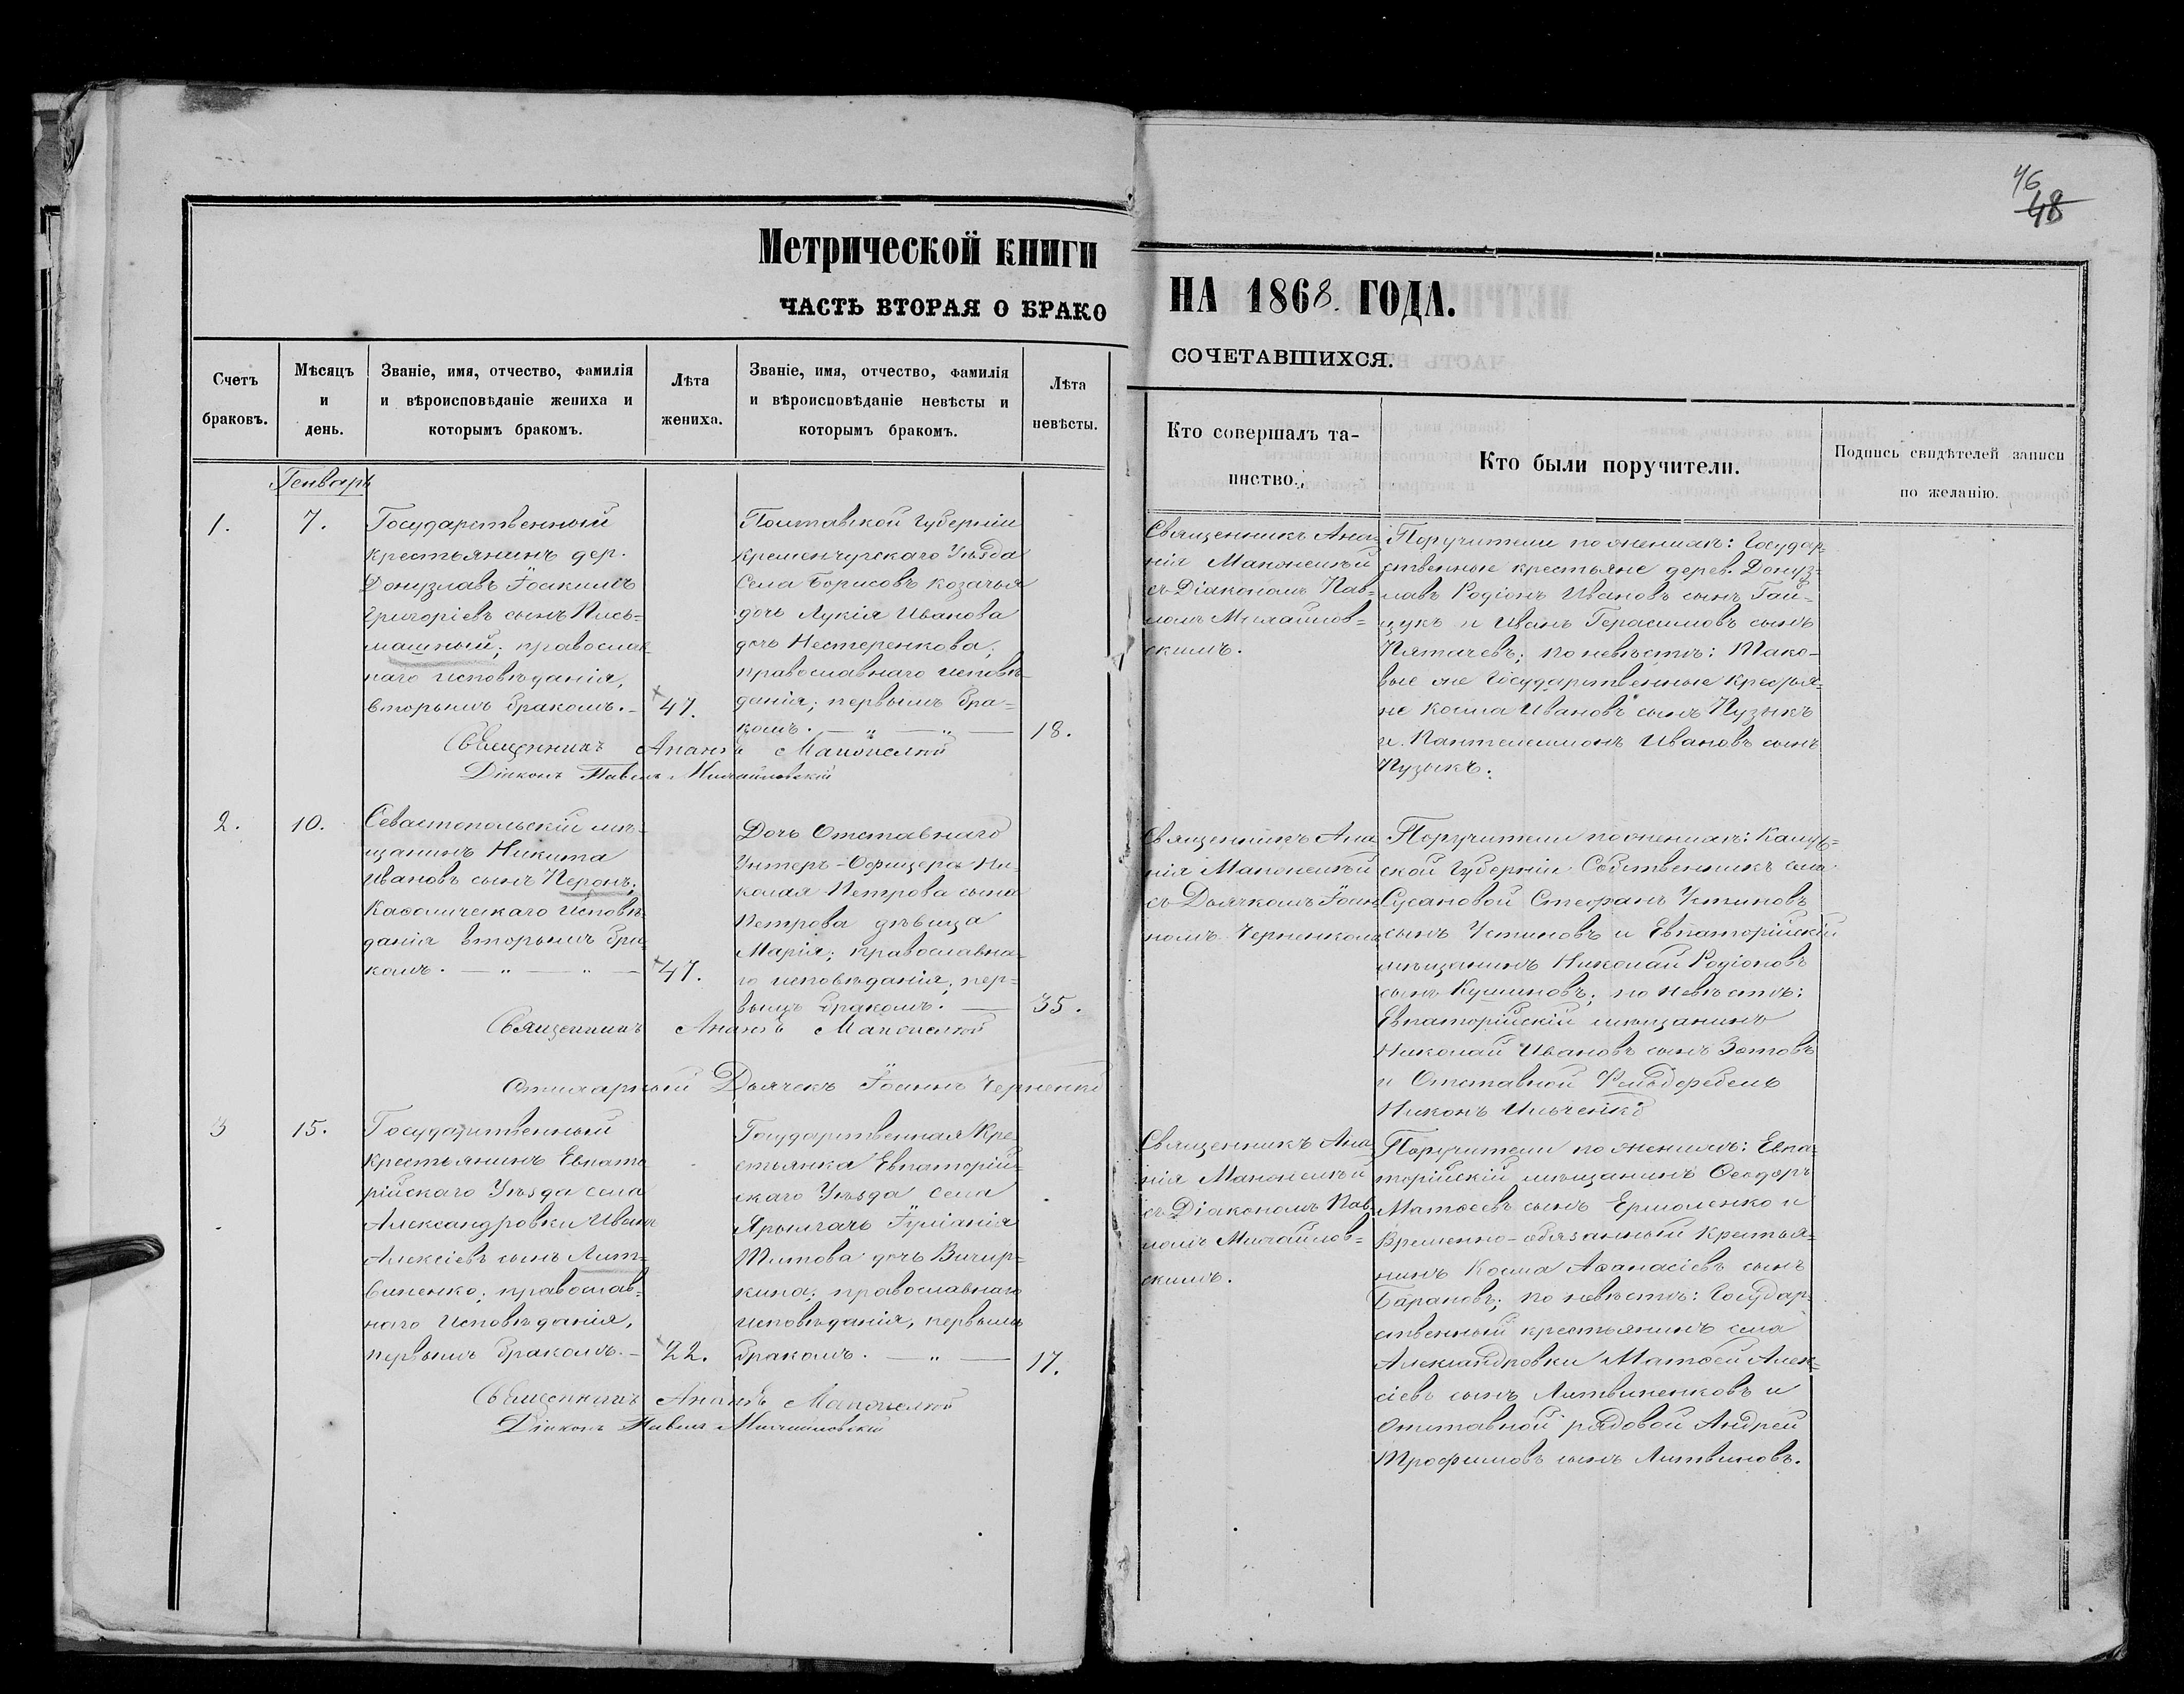 46
48
Метрической книги
НА 1868. ГОДА.
ЧАСТЬ ВТОРАЯ О БРАКО
СОЧЕТАВШИХСЯ.
Счетъ
браковъ.
Мѣсяцъ
и
день.
Званіе, имя, отчество, фамилія
и вѣроисповѣданіе жениха и
которымъ бракомъ.
Лѣта
жениха.
Званіе, имя, отчество, фамилія
и вѣроисповѣданіе невѣсты и
которымъ бракомъ.
Лѣта
невѣсты.
Кто совершалъ та-
инство.
Кто были поручители.
Подпись свидѣтелей записи
по желанію.
Генварь
1.
7.
Государственный
крестьянинъ дер.
Донузлавъ Іоакимъ
Григоріевъ сынъ Пись=
машный; православ
наго исповѣданія,
вторымъ бракомъ.-
47.
Полтавской Губерніи
Кременчугскаго Уѣзда
Села Борисовъ козачья
дочь Лукія Иванова
дочь Нестеренкова;
православнаго исповѣ-
данія; первымъ бра=
комъ. — „ — „ —
18.
Священникъ Ана=
нія
съ Діакономъ Пав=
ломъ Михайлов=
скимъ.
Поручители по женихѣ: Государ=
ственные крестьяне дерев. Донуз=
лавъ Родіонъ Ивановъ сынъ Гай=
цукъ и Иванъ Герасимовъ сынъ
Пятачевъ; по невѣстѣ: Тако-
вые же Государственные крестья=
не Косма Ивановъ сынъ Пузыкъ
и Пантелеимонъ Ивановъ сынъ
Пузыкъ.
Священникъ Ананія
Діаконъ Павелъ Михайловскій
2.
10.
Севастопольскій мѣ-
щанинъ Никита
Ивановъ сынъ Перонъ;
Каѳолическаго исповѣ
данія вторымъ бра
комъ. — „ — „ —
47.
Дочь Отставнаго
Унтеръ-Офицера Ни-
колая Петрова сына
Петрова дѣвица
Марія; православна-
го исповѣданія, пер=
вымъ бракомъ. —
35.
Священникъ Ана
нія
съ Дьячкомъ Іоан
номъ Черненкомъ
Поручители по женихѣ: Калуж=
ской Губерніи Собственникъ села
Сусановой Стефанъ Устиновъ
сынъ Устиновъ и Евпаторійскій
мѣщанинъ Николай Родіоновъ
сынъ Кушиновъ; по невѣстѣ:
Евпаторійскій мѣщанинъ
Николай Ивановъ сынъ Зотовъ
и Отставной Фельдфебель
Никонъ Ильченко
Священникъ Ананія
Дьячекъ Іоаннъ Черненко
3
15.
Государственный
крестьянинъ Евпато
рійскаго Уѣзда села
Александровки Иванъ
Алексіевъ сынъ Лит=
виненко; православ=
наго исповѣданія,
первымъ бракомъ.-
22.
Государственная Кре
стьянка Евпаторій
скаго Уѣзда села
Ярылгачъ Іуліанія
Титова дочь Вичир=
кина; православнаго
исповѣданія, первымъ
бракомъ. — „ —
17.
Священникъ Ана
нія
съ Діакономъ Пав
ломъ Михайлов=
скимъ.
Поручители по женихѣ: Евпа=
торійскій мѣщанинъ Ѳеодоръ
Матѳеевъ сынъ Ермоленко и
Временно-обязанный крестья=
нинъ Косма Аѳанасіевъ сынъ
Барановъ; по невѣстѣ: Государ=
ственный крестьянинъ села
Александровки Матѳей Алек=
сіевъ сынъ Литвиненковъ и
Отставной рядовой Андрей
Трофимовъ сынъ Литвиновъ.
Священникъ Ананія
Діаконъ Павелъ Михайловскій